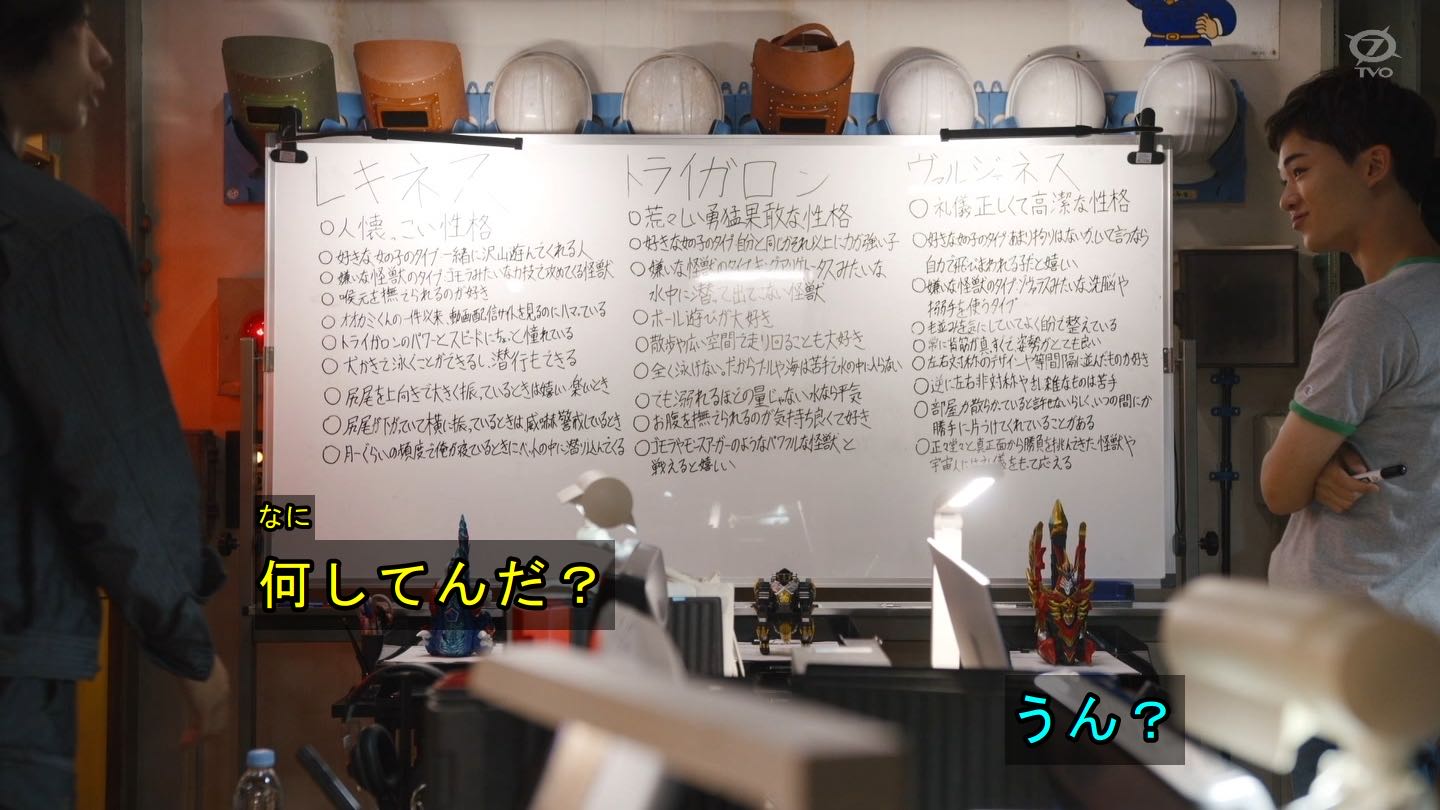 TVO
レキネス
○人懐っこい性格
○好きな女の子のタイプ 一緒に沢山遊んでくれる人
○嫌いな怪獣のタイプ ゴモラみたいな力技で攻めてくる怪獣
○喉元を撫でられるのが好き
○オオカミくんの一件以来、動画配信サイトを見るのにハマっている
○トライガロンのパワーとスピードにちょっと憧れている
○犬かきで泳ぐことができるし、潜行もできる
○尻尾を上向きで大きく振っているときは嬉しい 楽しいとき
○尻尾が下がっていて横に振っているときは威嚇 警戒しているとき
○月一ぐらいの頻度で俺が寝ているときにベッドの中に潜り込んでくる
トライガロン
○荒々しい勇猛果敢な性格
○好きな女の子のタイプ 自分と同じかそれ以上に力が強い子
○嫌いな怪獣のタイプ キングゲスラみたいな
水中に潜って出てこない怪獣
○ボール遊びが大好き
○散歩や広い空間で走り回ることも大好き
○全く泳げない。だからプールや海は苦手で水の中に入らない
○でも溺れるほどの量じゃない水なら平気
○お腹を撫でられるのが気持ち良くて好き
○ゴモラやモンスアーガーのようなパワフルな怪獣と
戦えると嬉しい
ヴァルジェネス
○礼儀正しくて高潔な性格
○好きな女の子のタイプ あまり拘りはないカレで言うなら
自力で飛び
○嫌いな怪獣のタイプ みたいな洗脳や
搦手を使うタイプ
○毛並みを気にしていてよく自分で整えている
○常に背筋が真っすぐで姿勢がとても良い
○左右対称のデザインや等間隔に並んだものが好き
○逆に左右非対称や乱雑なものは苦手
○部屋が散らかっていると許せないらしく、いつの間にか
勝手に片づけてくれていることがある
○正々堂々と真正面から勝負を挑んできた怪獣や
宇宙人には礼儀をもって応える
なに
何してんだ？
うん？